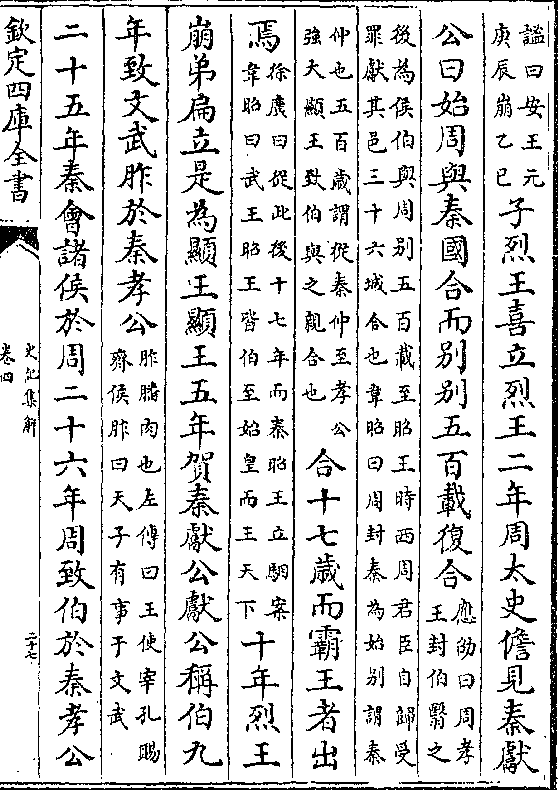 諡曰安王元
庚辰崩乙巳
子烈王喜立烈王二年周太史儋見秦獻
公曰始周與秦國合而别别五百載復合
應劭曰周孝
王封伯翳之
後為侯伯與周别五百載至昭王時西周君臣自歸受
罪獻其邑三十六城合也韋昭曰周封秦為始别謂秦
仲也五百歲謂從秦仲至孝公
強大顯王致伯與之親合也
合十七歲而霸王者出
焉
徐廣曰從此後十七年而秦昭王立駰案
韋昭曰武王昭王皆伯至始皇而王天下
十年烈王
崩弟扁立是為顯王顯王五年賀秦獻公獻公稱伯九
年致文武胙於秦孝公
胙膰肉也左傳曰王使宰孔賜
齊侯胙曰天子有事于文武
二十五年秦會諸侯於周二十六年周致伯於秦孝公
欽定四庫全書
史記集解
卷四
二十七